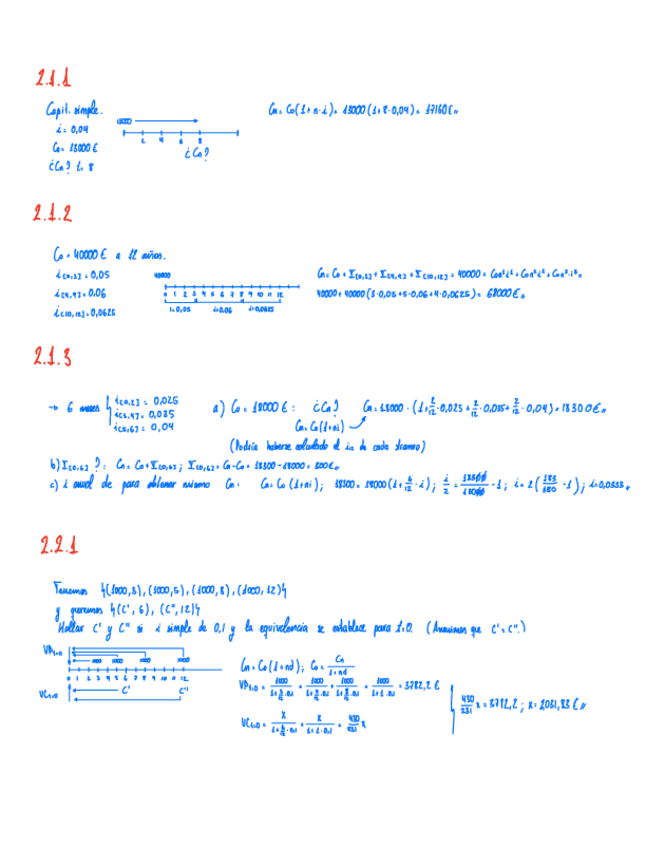 2.1.1
Capit. simple.
i = 0,04
C₀ = 13000 €
¿Cn? t = 8
13000
2 4 6 8
¿Cn?
Cn = C₀(1+n·i) = 13000(1+8·0,04) = 17160 €
2.1.2
C₀ = 40000 € a 12 años.
i[0,3] = 0,05
i[4,9] = 0,06
i[10,12] = 0,0625
40000
0 1 2 3 4 5 6 7 8 9 10 11 12
i=0,05 i=0,06 i=0,0625
40000 + 40000(3·0,05 + 5·0,06 + 4·0,0625) = 68000 €
2.1.3
→ 6 meses
i[0,2] = 0,025
= 0,035
= 0,04
a) C₀ = 18000 € : ¿Cn?
Cn = C₀(1+ni)
Cn = 18000 · (1 + 2/12 · 0,025 + 2/12 · 0,035 + 2/12 · 0,04) = 18300 €
(Podría haberse calculado el de cada tramo)
b) I[0,6] ? : Cn = C₀ + I[0,6] ; I[0,6] = Cn - C₀ = 18300 - 18000 = 300 €
c) i anual de para obtener mismo Cn : Cn = C₀(1+ni) ; 18300 = 18000(1 + 6/12 · i) ; i/2 = 18300/18000 - 1 ; i = 2(183/180 - 1) ; i = 0,0333
2.2.1
Tenemos {(1000,3), (1000,5), (1000,8), (1000,12)}
y queremos {(C', 6), (C'', 12)}
Hallar C' y C'' si i simple de 0,1 y la equivalencia se establece para t=0. (Asumimos que C' = C''.)
VPt=0
1000 1000 1000 1000
0 1 2 3 4 5 6 7 8 9 10 11 12
VCt=0
C' C''
Cn = C₀(1+nd) ; C₀ = Cn/1+nd
VPt=0 = 1000/1+3/12·0.1 + 1000/1+5/12·0.1 + 1000/1+8/12·0.1 + 1000/1+1·0.1 = 3782,2 €
VCt=0 = X/1+6/12·0.1 + X/1+1·0.1 = 430/231 X
430/231 x = 3782,2 ; x = 2031,83 €